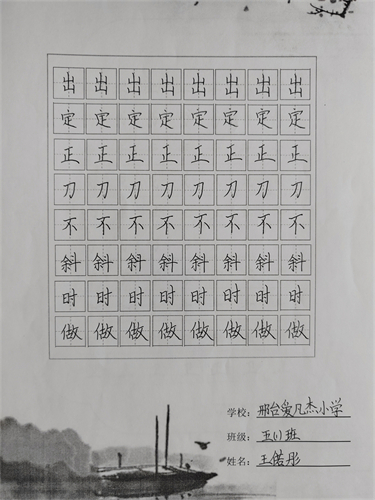 出出出出出出出出
定定定定定定定定
正正正正正正正正
刀刀刀刀刀刀刀刀
不不不不不不不不
斜斜斜斜斜斜斜斜
时时时时时时时时
做做做做做做做做
学校：邢台爱凡杰小学
班级：五(1)班
姓名：王偌彤